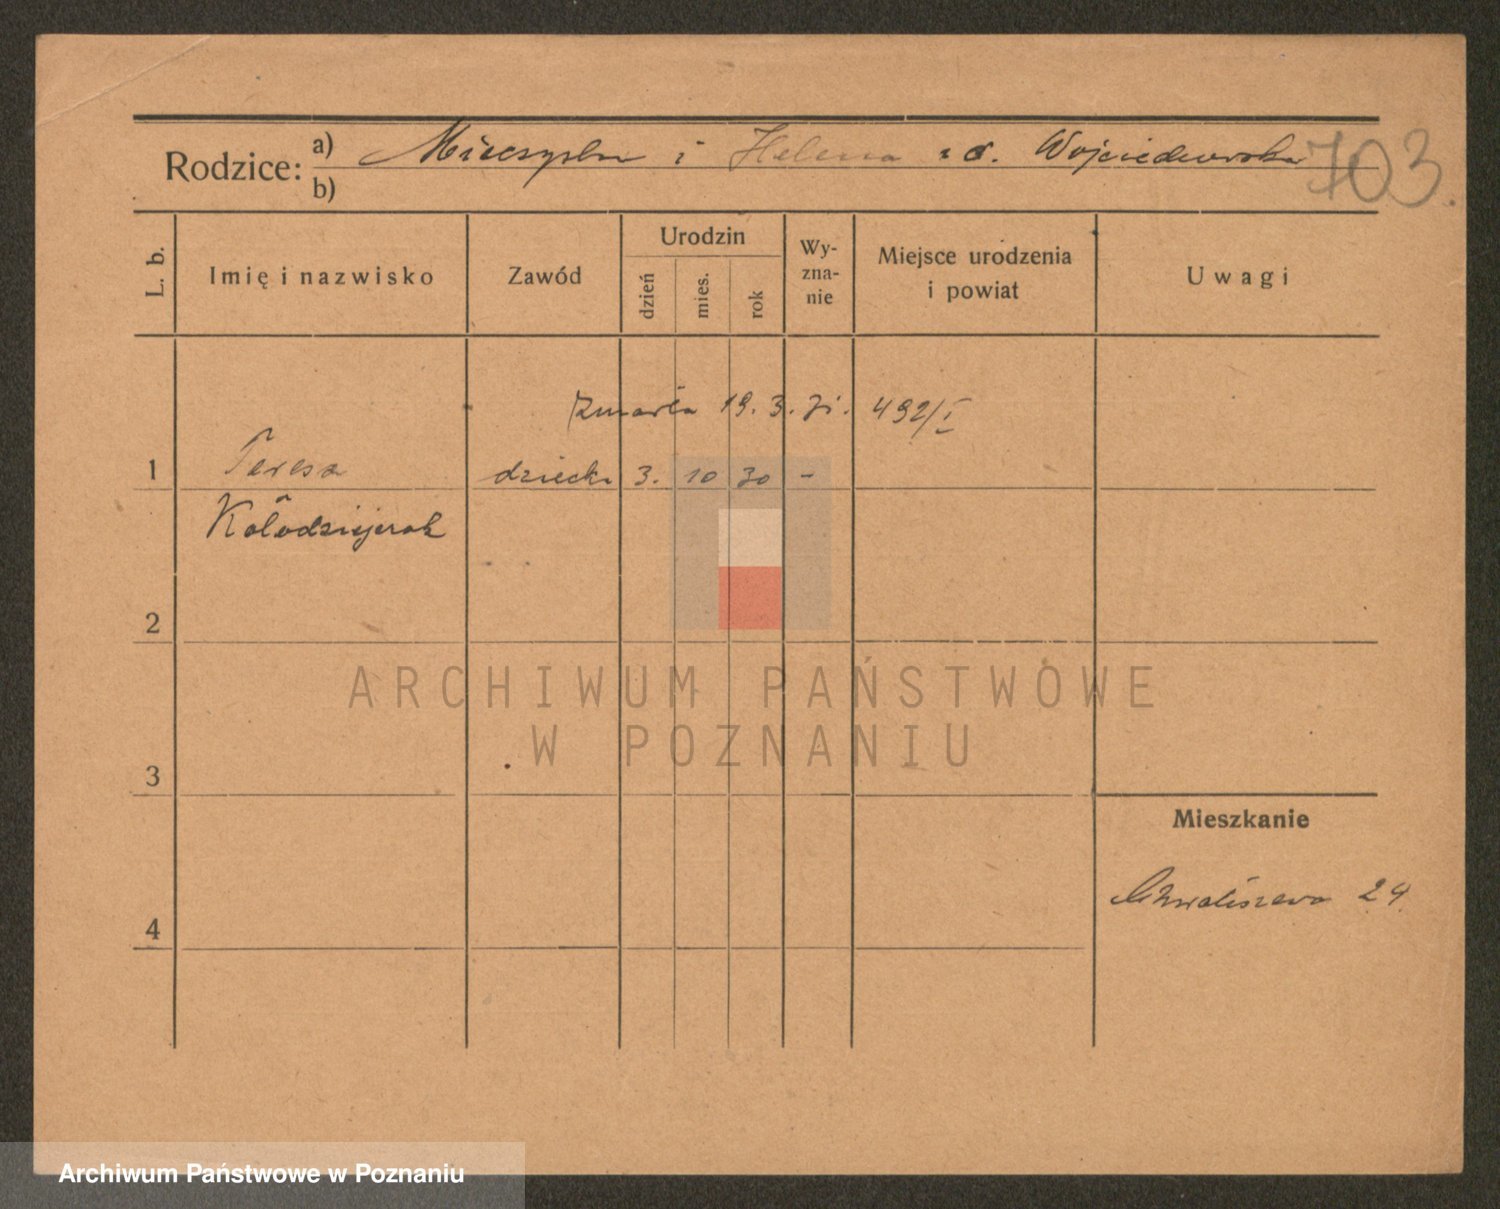 Rodzice: a) Mieczysław i Helena z d. Wojciechowska 703.
b)
L. b. Imię i nazwisko Zawód Urodzin dzień mies. rok Wy-zna-nie Miejsce urodzenia i powiat Uwagi
zmarła 19. 3. 31. 492/I
1 Teresa dziecko 3. 10 30 -
Kołodziejczak
2
ARCHIWUM PAŃSTWOWE
W POZNANIU
3
Mieszkanie
Chwaliszewo 24
4
Archiwum Państwowe w Poznaniu